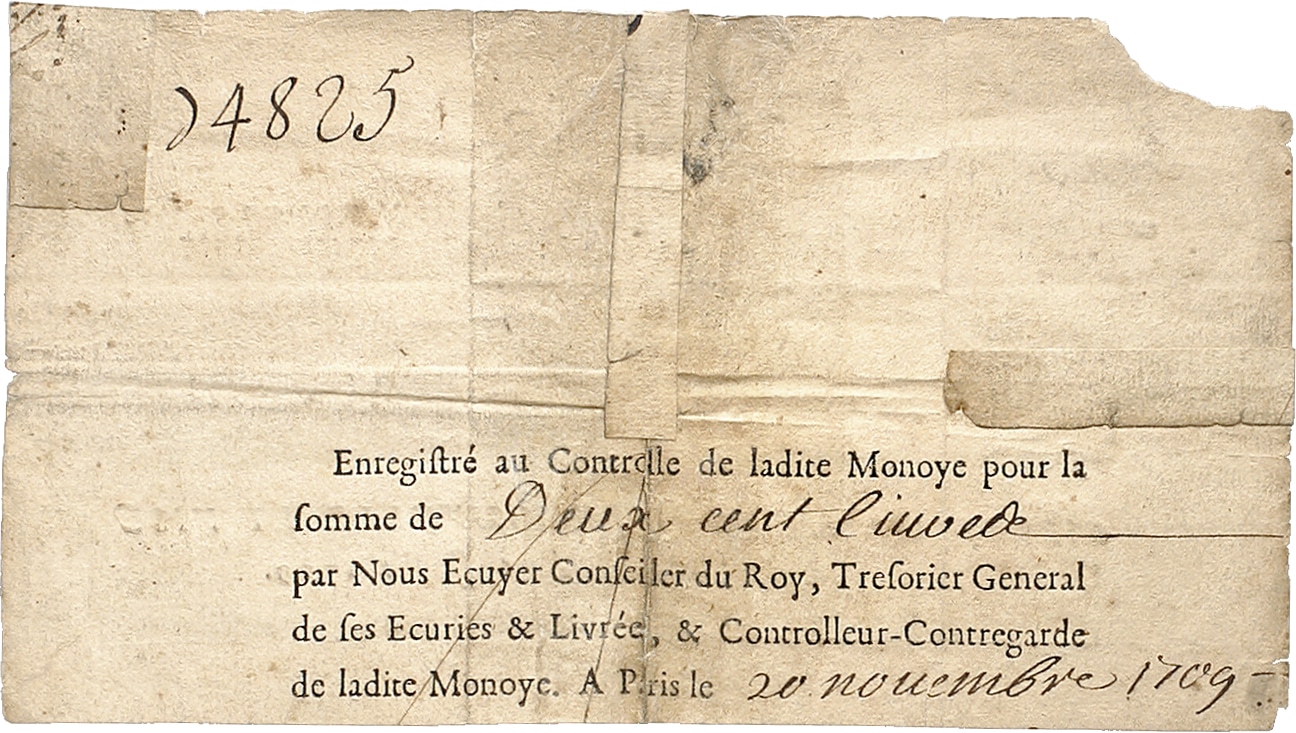 )4825
Enregiſtré au Controlle de ladite Monoye pour la
ſomme de Deux cent
par Nous Ecuyer Conſeiller du Roy, Treſorier General
de ſes Ecuries & Livrée, & Controlleur-Contregarde
de ladite Monoye. A Paris le 20 nouembre 1709